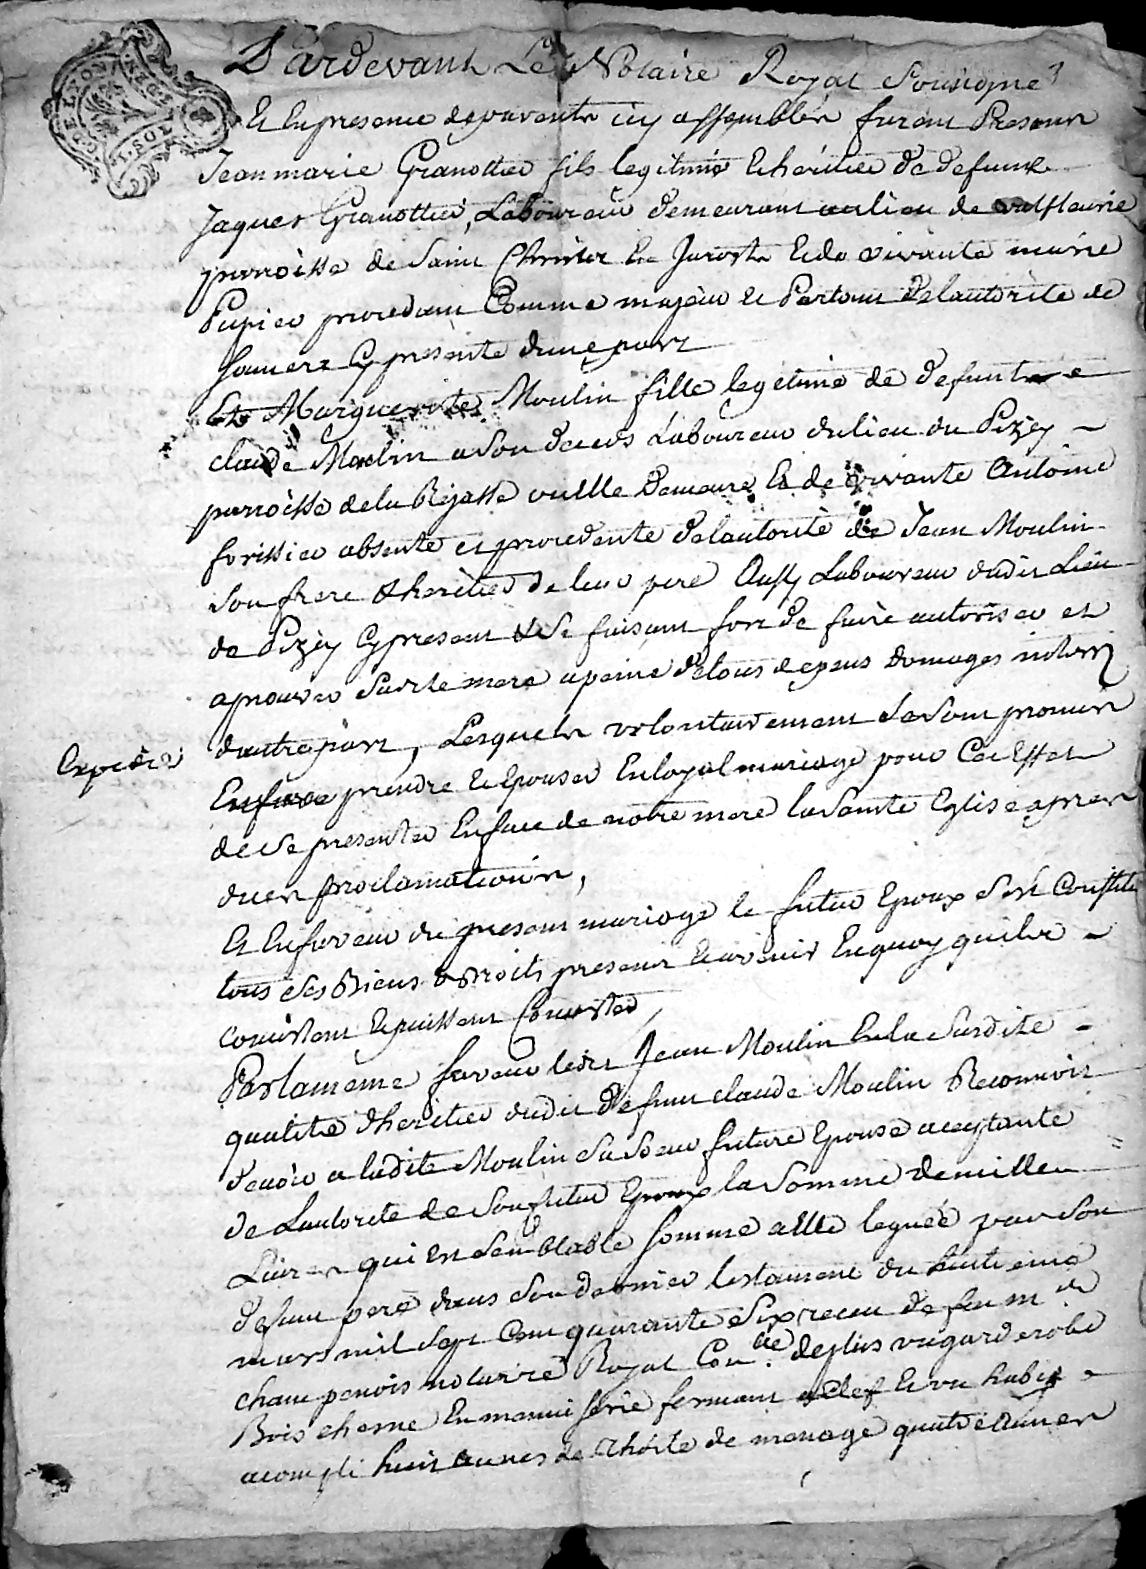 G. DE LYON
1. SOL
Pardevant Le Notaire Royal Sousigné
Et En presence des parents icy assemblés furent Presents
Jean marie Granottier fils legitime et heritier de defunt
Jaques Granottier, Laboureur demeurant au lieu de valfleurie
parroisse de Saint Christ En Jarest Et de vivante marie
Pupier procedant Comme majeur et Partant De lautorité de
sa mere Cy presente dune part
Et Marguerite Moulin fille legitime de defunt
claude Moulin a son deceds Laboureur du lieu du Pizey
parroisse de la Rajasse ou Elle Demeure Et de vivante Antoinе
forissier absente et procedente de lautorité de Jean Moulin
son frere & heritier de leur pere Aussy Laboureur dudit Lieu
de Pizey Cy present & se faisant fort de faire autoriser et
aprouver sadite mere a peine de tous depens domages interets
Expedié
dautre part, Lesquels volontairement se sont promis
prendre et Epouser En loyal mariage pour Cet Effet
de se presenter En face de notre mere la Sainte Eglise apres
dues proclamations,
Et En faveur du present mariage le futur Epoux s'est Constitué
tous ses Biens & Droits presents et avenir En quoy quils
consistent et puissent Consister,
Par la meme faveur ledit Jean Moulin En la Susdite
qualité d'heritier dudit defunt claude Moulin Reconnoit
devoir a ladite Moulin sa Soeur future Epouse aceptante
de L'autorité de son futur Epoux la somme de mille
Livres qui est semblable somme a Elle leguée par son
defunt pere dans son dernier testament du vingt cinq
mars mil sept Cent quarante six receu defeu me
champenois notaire Royal de plus un garderobe
Bois chesne En menuiserie fermant a clef Et un habit
acompli huit aunes de Thoile de menage quatre aunes